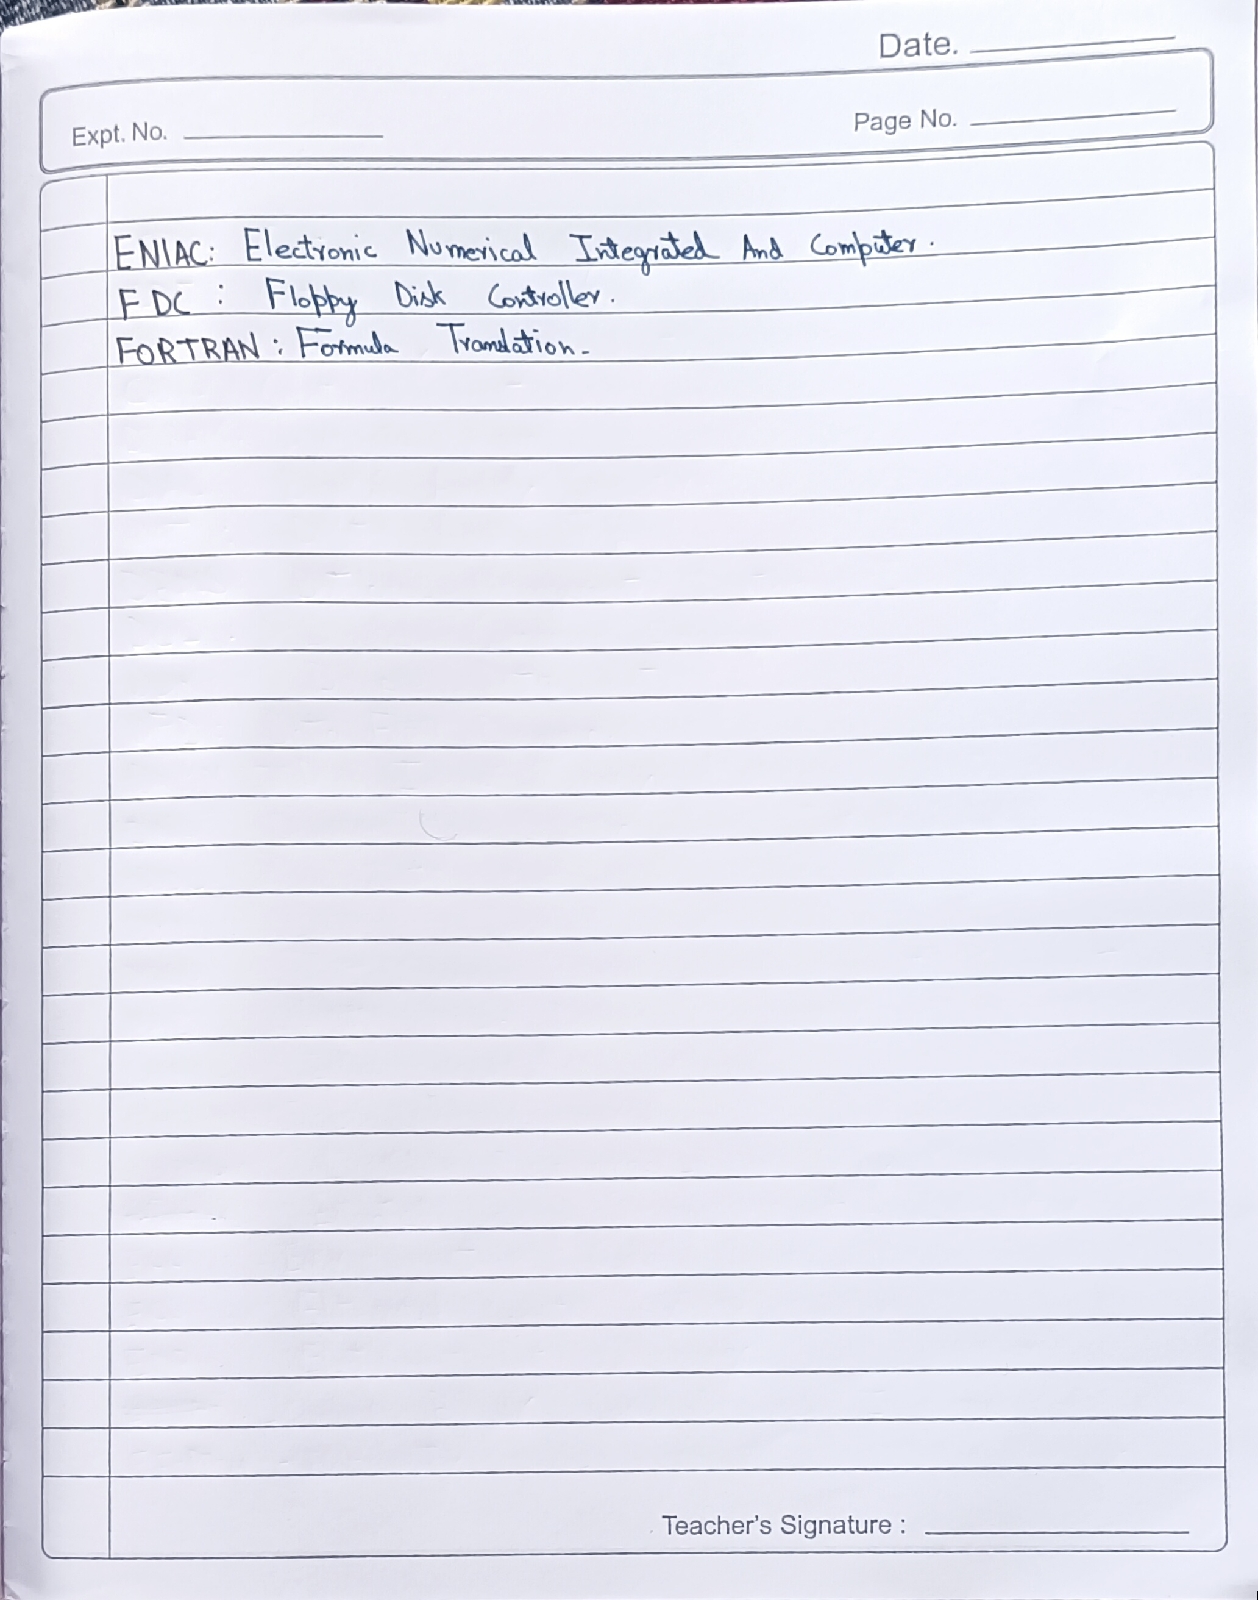 Date.
Expt. No.
Page No.
ENIAC: Electronic Numerical Integrated And Computer.
FDC : Floppy Disk Controller.
FORTRAN : Formula Translation.
Teacher's Signature :